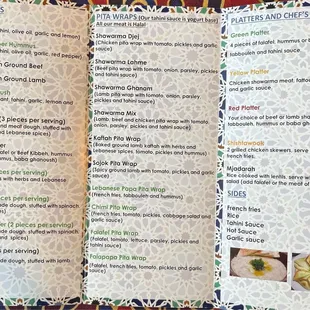 tahini, olive oil, garlic and lemon)
olive oil, garlic, red pepper)
Ground Beef
Ground Lamb
tahini, garlic, lemon and
(3 pieces per serving)
meat dough, stuffed with
and Lebanese spices)
or Beef Kibbeh, hummus,
hummus, baba ghanoush)
pieces per serving)
with herbs and Lebanese
pieces per serving)
dough, stuffed with spinach,
and spices)
(2 pieces per serving)
dough, stuffed with spinach,
and spices)
pieces per serving)
dough, stuffed with lamb,
PITA WRAPS (Our tahini sauce is yogurt base)
All our meat is Halal
Shawarma Djej
(Chicken pita wrap with tomato, pickles and garlic sauce)
Shawarma Lahme
(Beef pita wrap with tomato, onion, parsley, pickles and tahini sauce)
Shawarma Ghanam
(Lamb pita wrap with tomato, onion, parsley, pickles and tahini sauce)
Shawarma Mix
(Lamb, beef and chicken pita wrap with tomato, onion, parsley, pickles, garlic and tahini sauce)
Kaftah Pita Wrap
(Baked ground lamb kaftah with herbs and Lebanese spices, tomato, pickles and hummus)
Sojok Pita Wrap
(Spicy ground lamb with tomato, pickles and garlic sauce)
Lebanese Papa Pita Wrap
(French fries, tabbouleh and hummus)
Chimi Pita Wrap
(French fries, tomato, pickles, cabbage salad and garlic sauce)
Falafel Pita Wrap
(Falafel, tomato, lettuce, parsley, pickles and tahini sauce)
Falapapa Pita Wrap
(Falafel, french fries, tomato, pickles and garlic sauce)
PLATTERS AND CHEF'S
Green Platter
4 pieces of falafel, hummus or
tabbouleh and tahini sauce.
Yellow Platter
Chicken shawarma meat, fattoush
and garlic sauce.
Red Platter
Your choice of beef or lamb
tabbouleh, hummus or baba
Shishtawook
2 grilled chicken skewers, served
french fries.
Mjadarah
Rice cooked with lentils, served with
salad (add falafel or the meat of
SIDES
French fries
Rice
Tahini Sauce
Hot Sauce
Garlic sauce